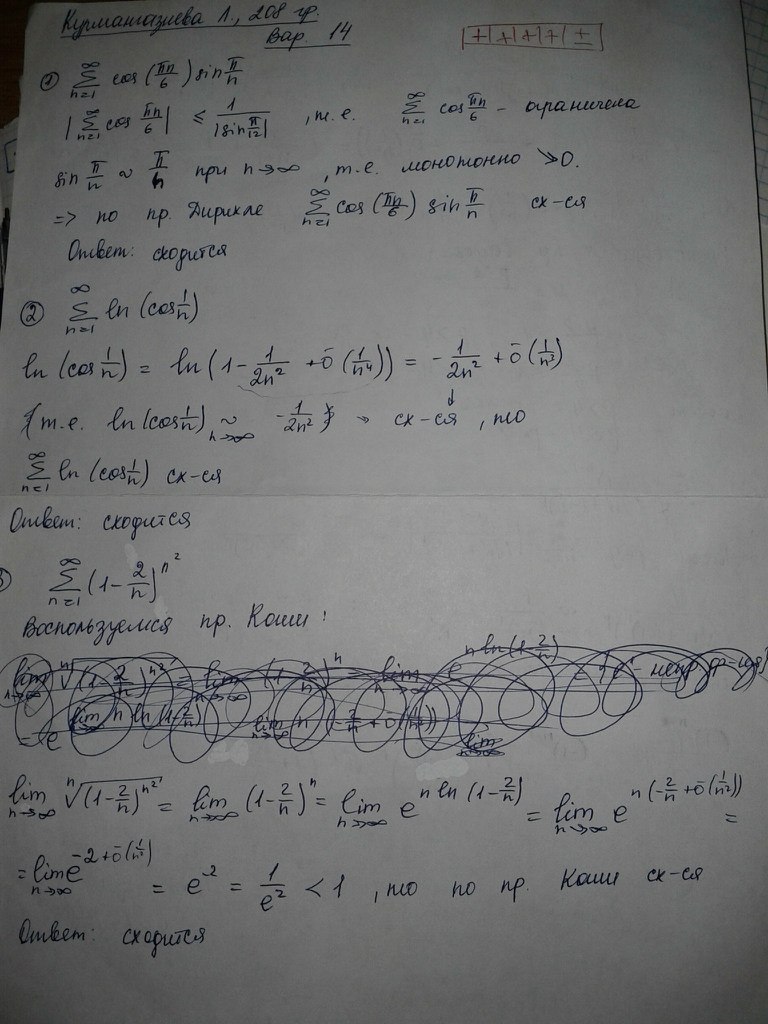 Курмангазиева Л., 208 гр.
Вар. 14
+ + + + ±
① ∑_{n=1}^{∞} cos(πn/6) sin π/n
|∑_{n=1}^{∞} cos πn/6| ≤ 1/|sin π/12| , т.е. ∑_{n=1}^{∞} cos πn/6 - ограничена
sin π/n ~ π/n при n→∞ , т.е. монотонно ↘0.
=> по пр. Дирихле ∑_{n=1}^{∞} cos(πn/6) sin π/n сх-ся
Ответ: сходится
② ∑_{n=1}^{∞} ln(cos 1/n)
ln(cos 1/n) = ln(1 - 1/2n² + ō(1/n⁴)) = -1/2n² + ō(1/n³)
т.е. ln(cos 1/n) ~_{n→∞} -1/2n² → сх-ся , то
∑_{n=1}^{∞} ln(cos 1/n) сх-ся
Ответ: сходится
∑_{n=1}^{∞} (1 - 2/n)^{n²}
Воспользуемся пр. Коши:
lim_{n→∞} ⁿ√((1 - 2/n)^{n²}) = lim_{n→∞} (1 - 2/n)^n = lim_{n→∞} e^{n ln(1 - 2/n)}
lim_{n→∞} ⁿ√((1 - 2/n)^{n²}) = lim_{n→∞} (1 - 2/n)^n = lim_{n→∞} e^{n ln(1 - 2/n)} = lim_{n→∞} e^{n(-2/n + ō(1/n²))} =
= lim_{n→∞} e^{-2 + ō(1/n²)} = e^{-2} = 1/e² < 1 , то по пр. Коши сх-ся
Ответ: сходится